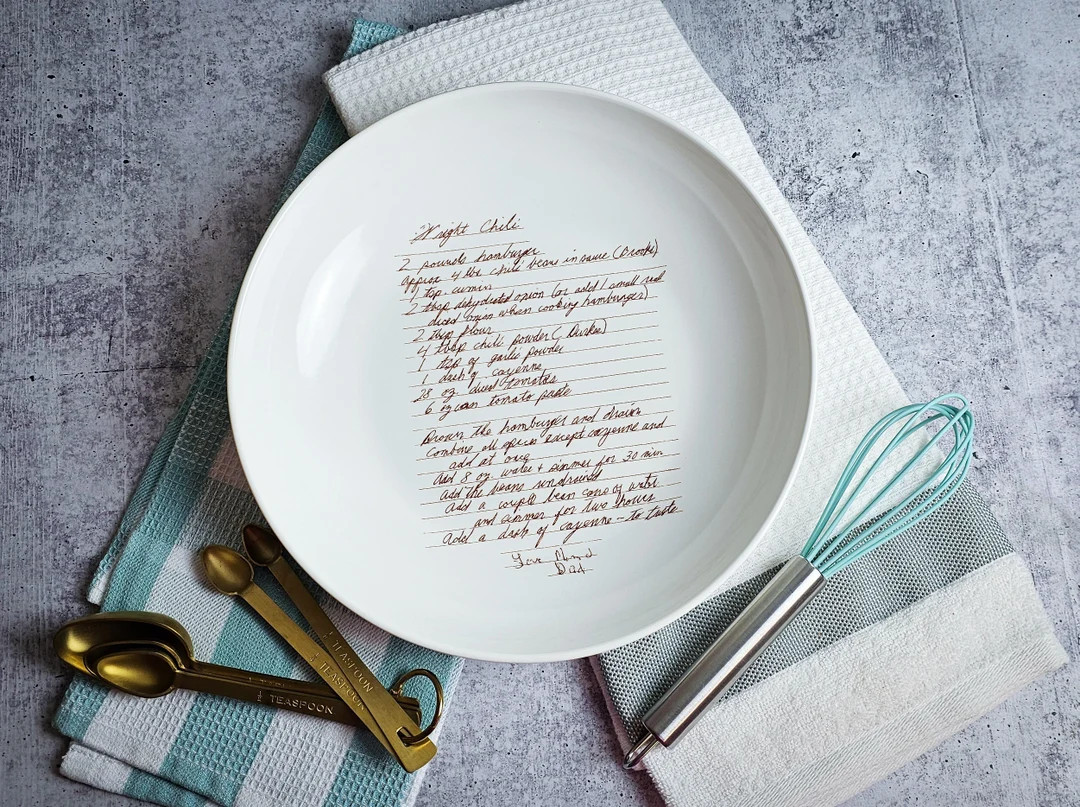 Wright Chili
2 pounds hamburger
Approx 4 lbs chili beans in sauce (Brooks)
1 tsp. cumin
2 tbsp dehydrated onion (or add 1 small red
diced onion when cooking hamburger)
2 tbsp flour
4 tbsp chili powder (Durkee)
1 tsp of garlic powder
1 dash of cayenne
28 oz. diced tomatoes
6 oz can tomato paste
Brown the hamburger and drain
Combine all spices except cayenne and
add at once
Add 8 oz. water + simmer for 30 min
Add the beans undrained
Add a couple bean cans of water
and simmer for two hours
Add a dash of cayenne - to taste
Love Mom &
Dad
TEASPOON
TEASPOON
TEASPOON